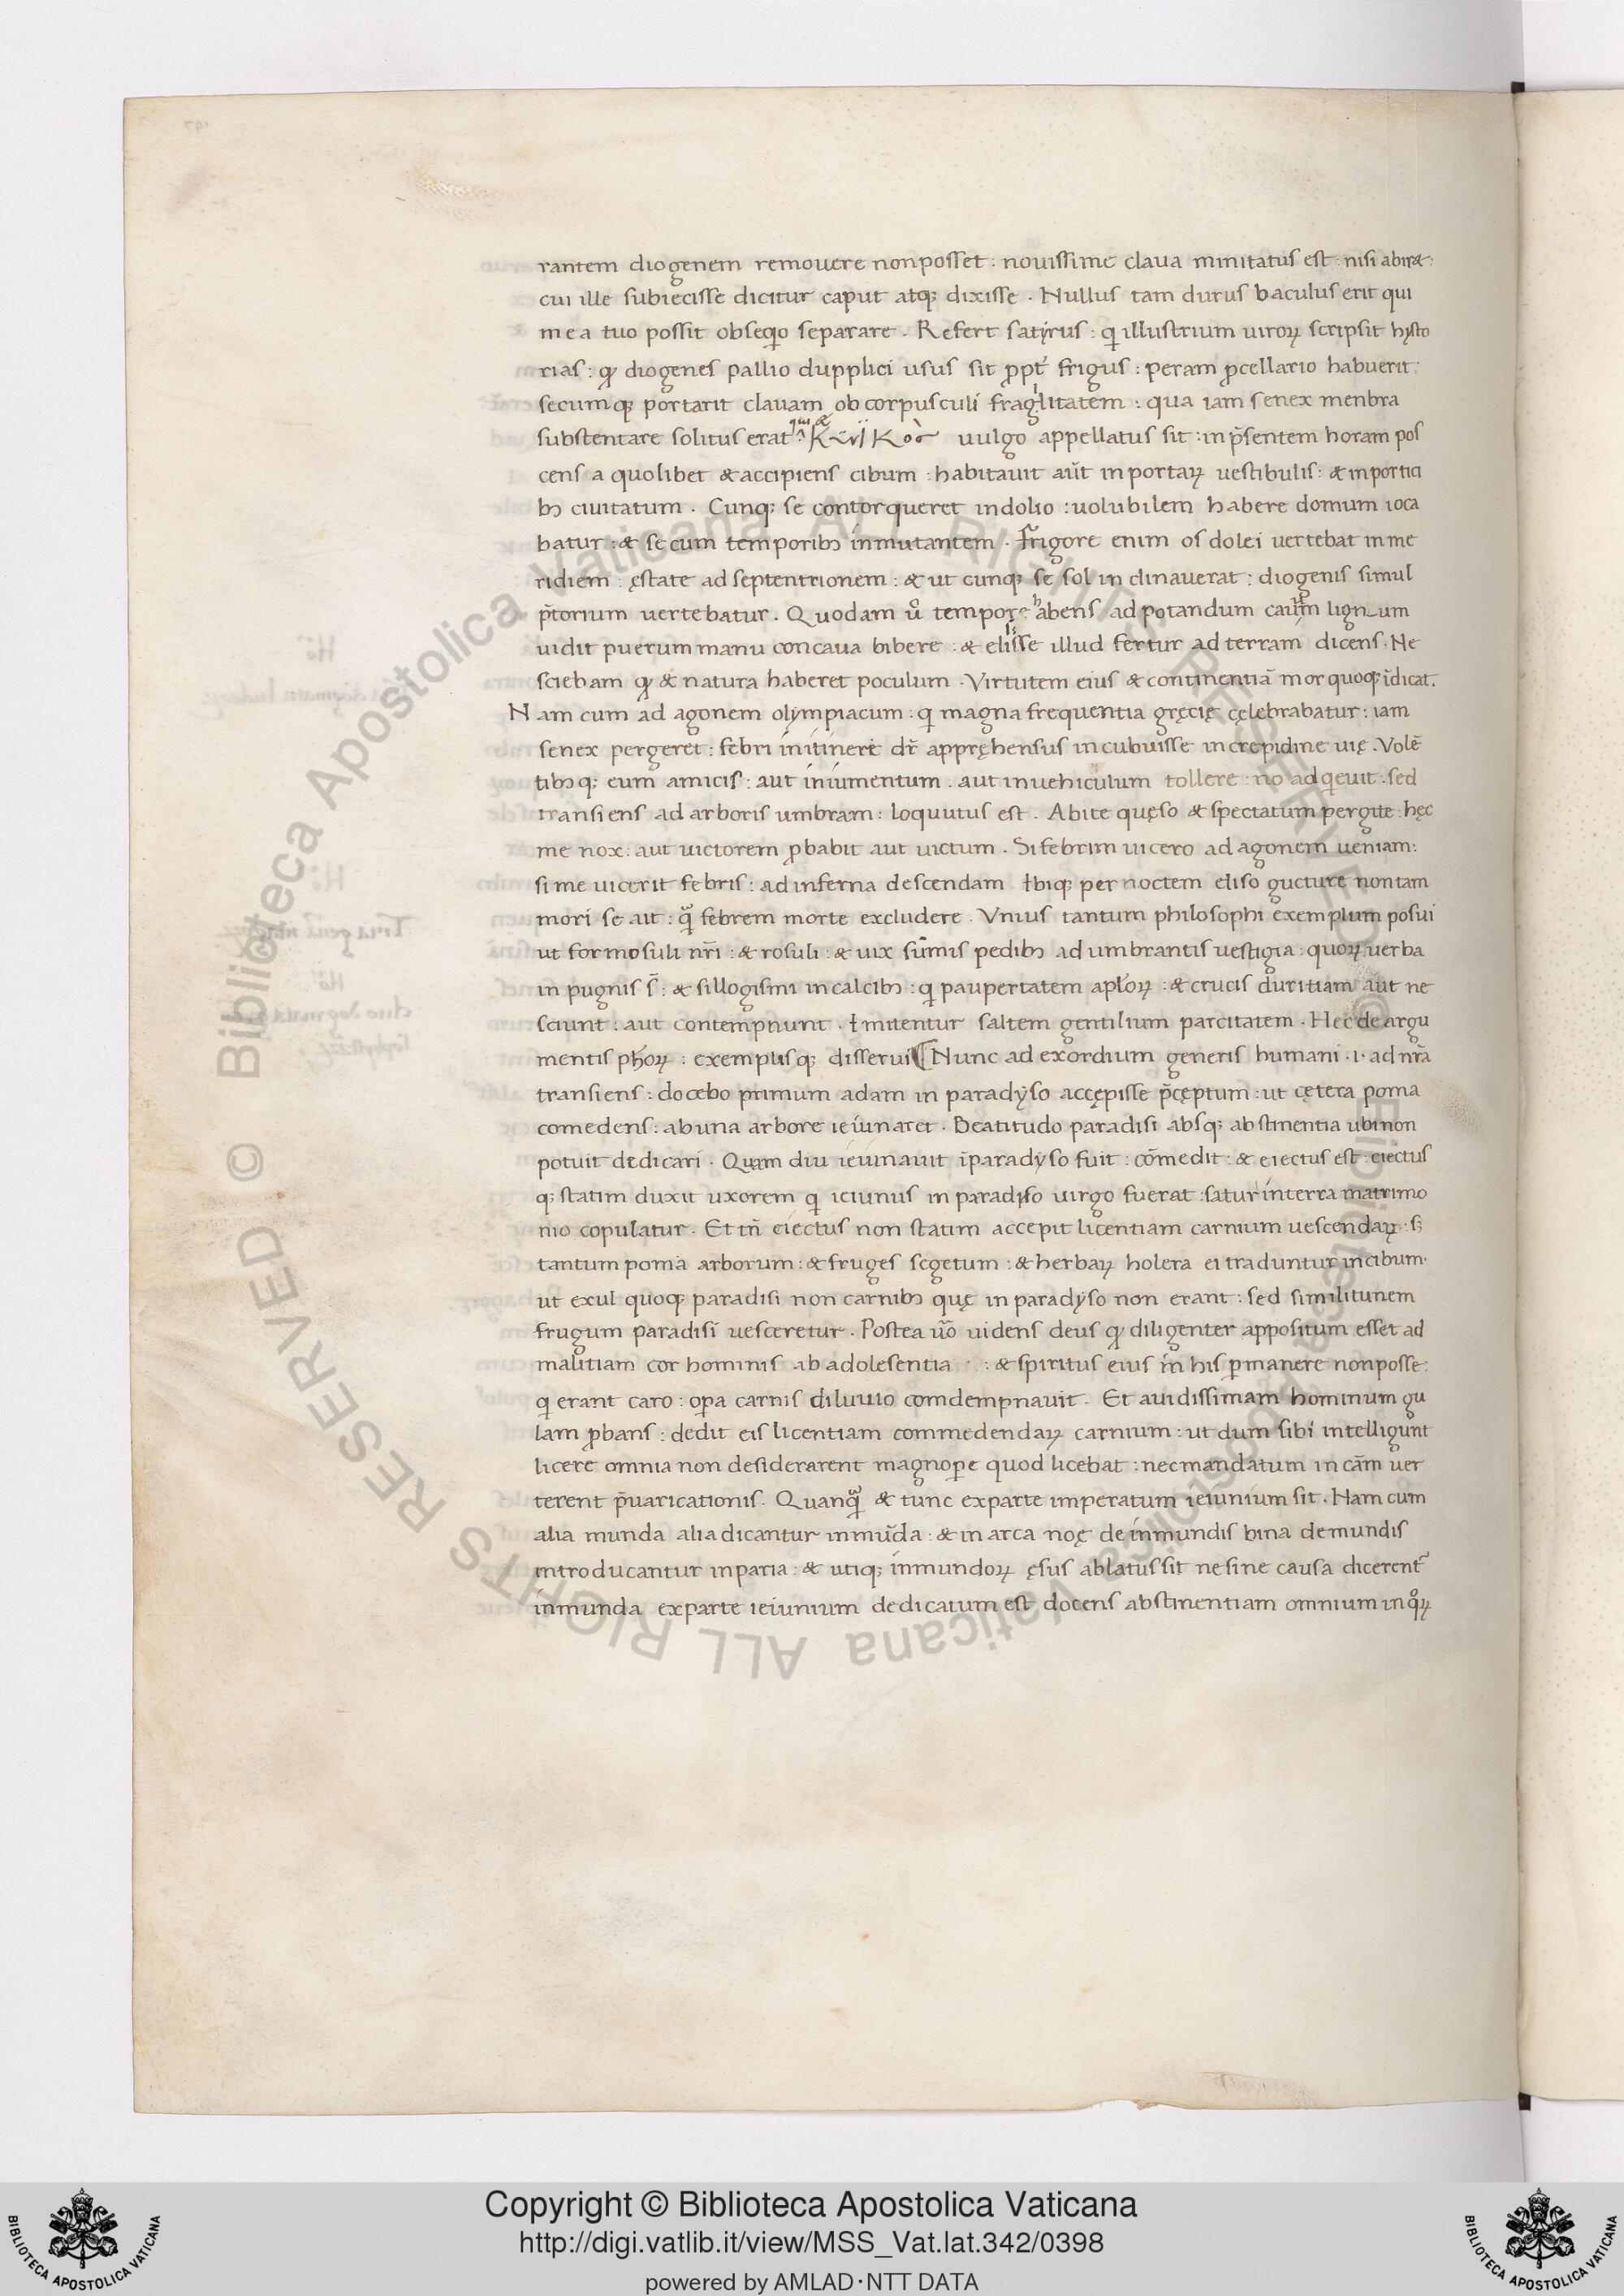 rantem diogenem remouere non posset : nouissime claua minitatus est : nisi abiret :
cui ille subiecisse dicitur caput atq; dixisse . Nullus tam durus baculus erit qui
me a tuo possit obseqͥo separare . Refert satyrus : qͥ illustrium uiroꝝ scripsit hysto
rias : ꝙ diogenes pallio dupplici usus sit ꝓpt̄ frigus : peram ꝓ cellario habuerit :
secumq; portarit clauam ob corpusculi fragilitatem : qua iam senex menbra
substentare solitus erat vulgo appellatus sit : in p̄sentem horam pos
cens a quolibet & accipiens cibum : habitauit aūt in portaꝝ uestibulis : & in portici
bꝫ ciuitatum . Cunq; se contorqueret in dolio : uolubilem habere domum ioca
batur : & se cum temporibꝫ inmutantem . Frigore enim os dolei uertebat in me
ridiem : ęstate ad septentrionem : & ut cunq; se sol inclinauerat : diogenis simul
p̄torium uertebatur . Quodam ů tempore habens ad potandum cauum lignum
uidit puerum manu concaua bibere : & elisisse illud fertur ad terram dicens . Ne
sciebam ꝙ & natura haberet poculum . Virtutem eius & continentiā mor quoq; īdicat .
Nam cum ad agonem olympiacum : qͥ magna frequentia gręcię cęlebrabatur : iam
senex pergeret : febri in itinere dr̄ appręhensus incubuisse in crepidine uię . Volē
tibꝫq; eum amicis : aut in iumentum . aut in uehiculum tollere : nō adqͥeuit : sed
transiens ad arboris umbram : loquutus est . Abite quęso & spectatum pergite : hęc
me nox : aut uictorem ꝓbabit aut uictum . Si febrim uicero ad agonem ueniam :
si me uicerit febris : ad inferna descendam Ibiq; per noctem eliso gucture non tam
mori se ait : qͣ̄ febrem morte excludere . Vnius tantum philosophi exemplum posui
ut formosuli nr̄i : & rosuli : & uix sūmis pedibꝫ adumbrantis uestigia : quoꝝ uerba
in pugnis s̄ : & sillogismi in calcibꝫ : qͥ paupertatem apl̄oꝝ : & crucis duritiam aut ne
sciunt : aut contempnunt . Imitentur saltem gentilium parcitatem . Hec de argu
mentis ph̄oꝝ : exemplisq; disserui ¶ Nunc ad exordium generis humani . i . ad nr̄a
transiens : docebo primum adam in paradyso accępisse p̄cęptum : ut cętera poma
comedens : ab una arbore ieiunaret . Beatitudo paradisi absq; abstinentia ubi non
potuit dedicari . Quam diu ieiunauit ī paradyso fuit : cōmedit : & eiectus est : eiectus
q; statim duxit uxorem qͥ ieiunus in paradiso uirgo fuerat : satur in terra matrimo
nio copulatur . Et tn̄ eiectus non statim accepit licentiam carnium uescendaꝝ : sꝫ
tantum poma arborum : & fruges segetum : & herbaꝝ holera ei traduntur in cibum .
ut exul quoq; paradisi non carnibꝫ quę in paradyso non erant : sed similitunem
frugum paradisi uesceretur . Postea ūo uidens deus ꝙ diligenter appositum esset ad
malitiam cor hominis ab adolesentia : & spiritus eius in his ꝑmanere non posse :
qͥ erant caro : oꝑa carnis diluuio comdempnauit . Et auidissimam hominum gu
lam ꝓbans : dedit eis licentiam commedendaꝝ carnium : ut dum sibi intelligunt
licere omnia non desiderarent magnoꝑe quod licebat : nec mandatum in cām uer
terent p̄uaricationis . Quanqͣ̄ & tunc ex parte imperatum ieiunium sit . Nam cum
alia munda alia dicantur inmūda : & in arca noę de inmundis bina de mundis
introducantur inparia : & utiq; inmundoꝝ ęsus ablatus sit ne sine causa dicerent᷑
inmunda ex parte ieiunium dedicatum est docens abstinentiam omnium in qͦꝝ
© Biblioteca Apostolica Vaticana ALL RIGHTS RESERVED © Biblioteca Apostolica Vaticana ALL RIGHTS RESERVED
Copyright © Biblioteca Apostolica Vaticana
http://digi.vatlib.it/view/MSS_Vat.lat.342/0398
powered by AMLAD·NTT DATA
BIBLIOTECA APOSTOLICA VATICANA
BIBLIOTECA APOSTOLICA VATICANA